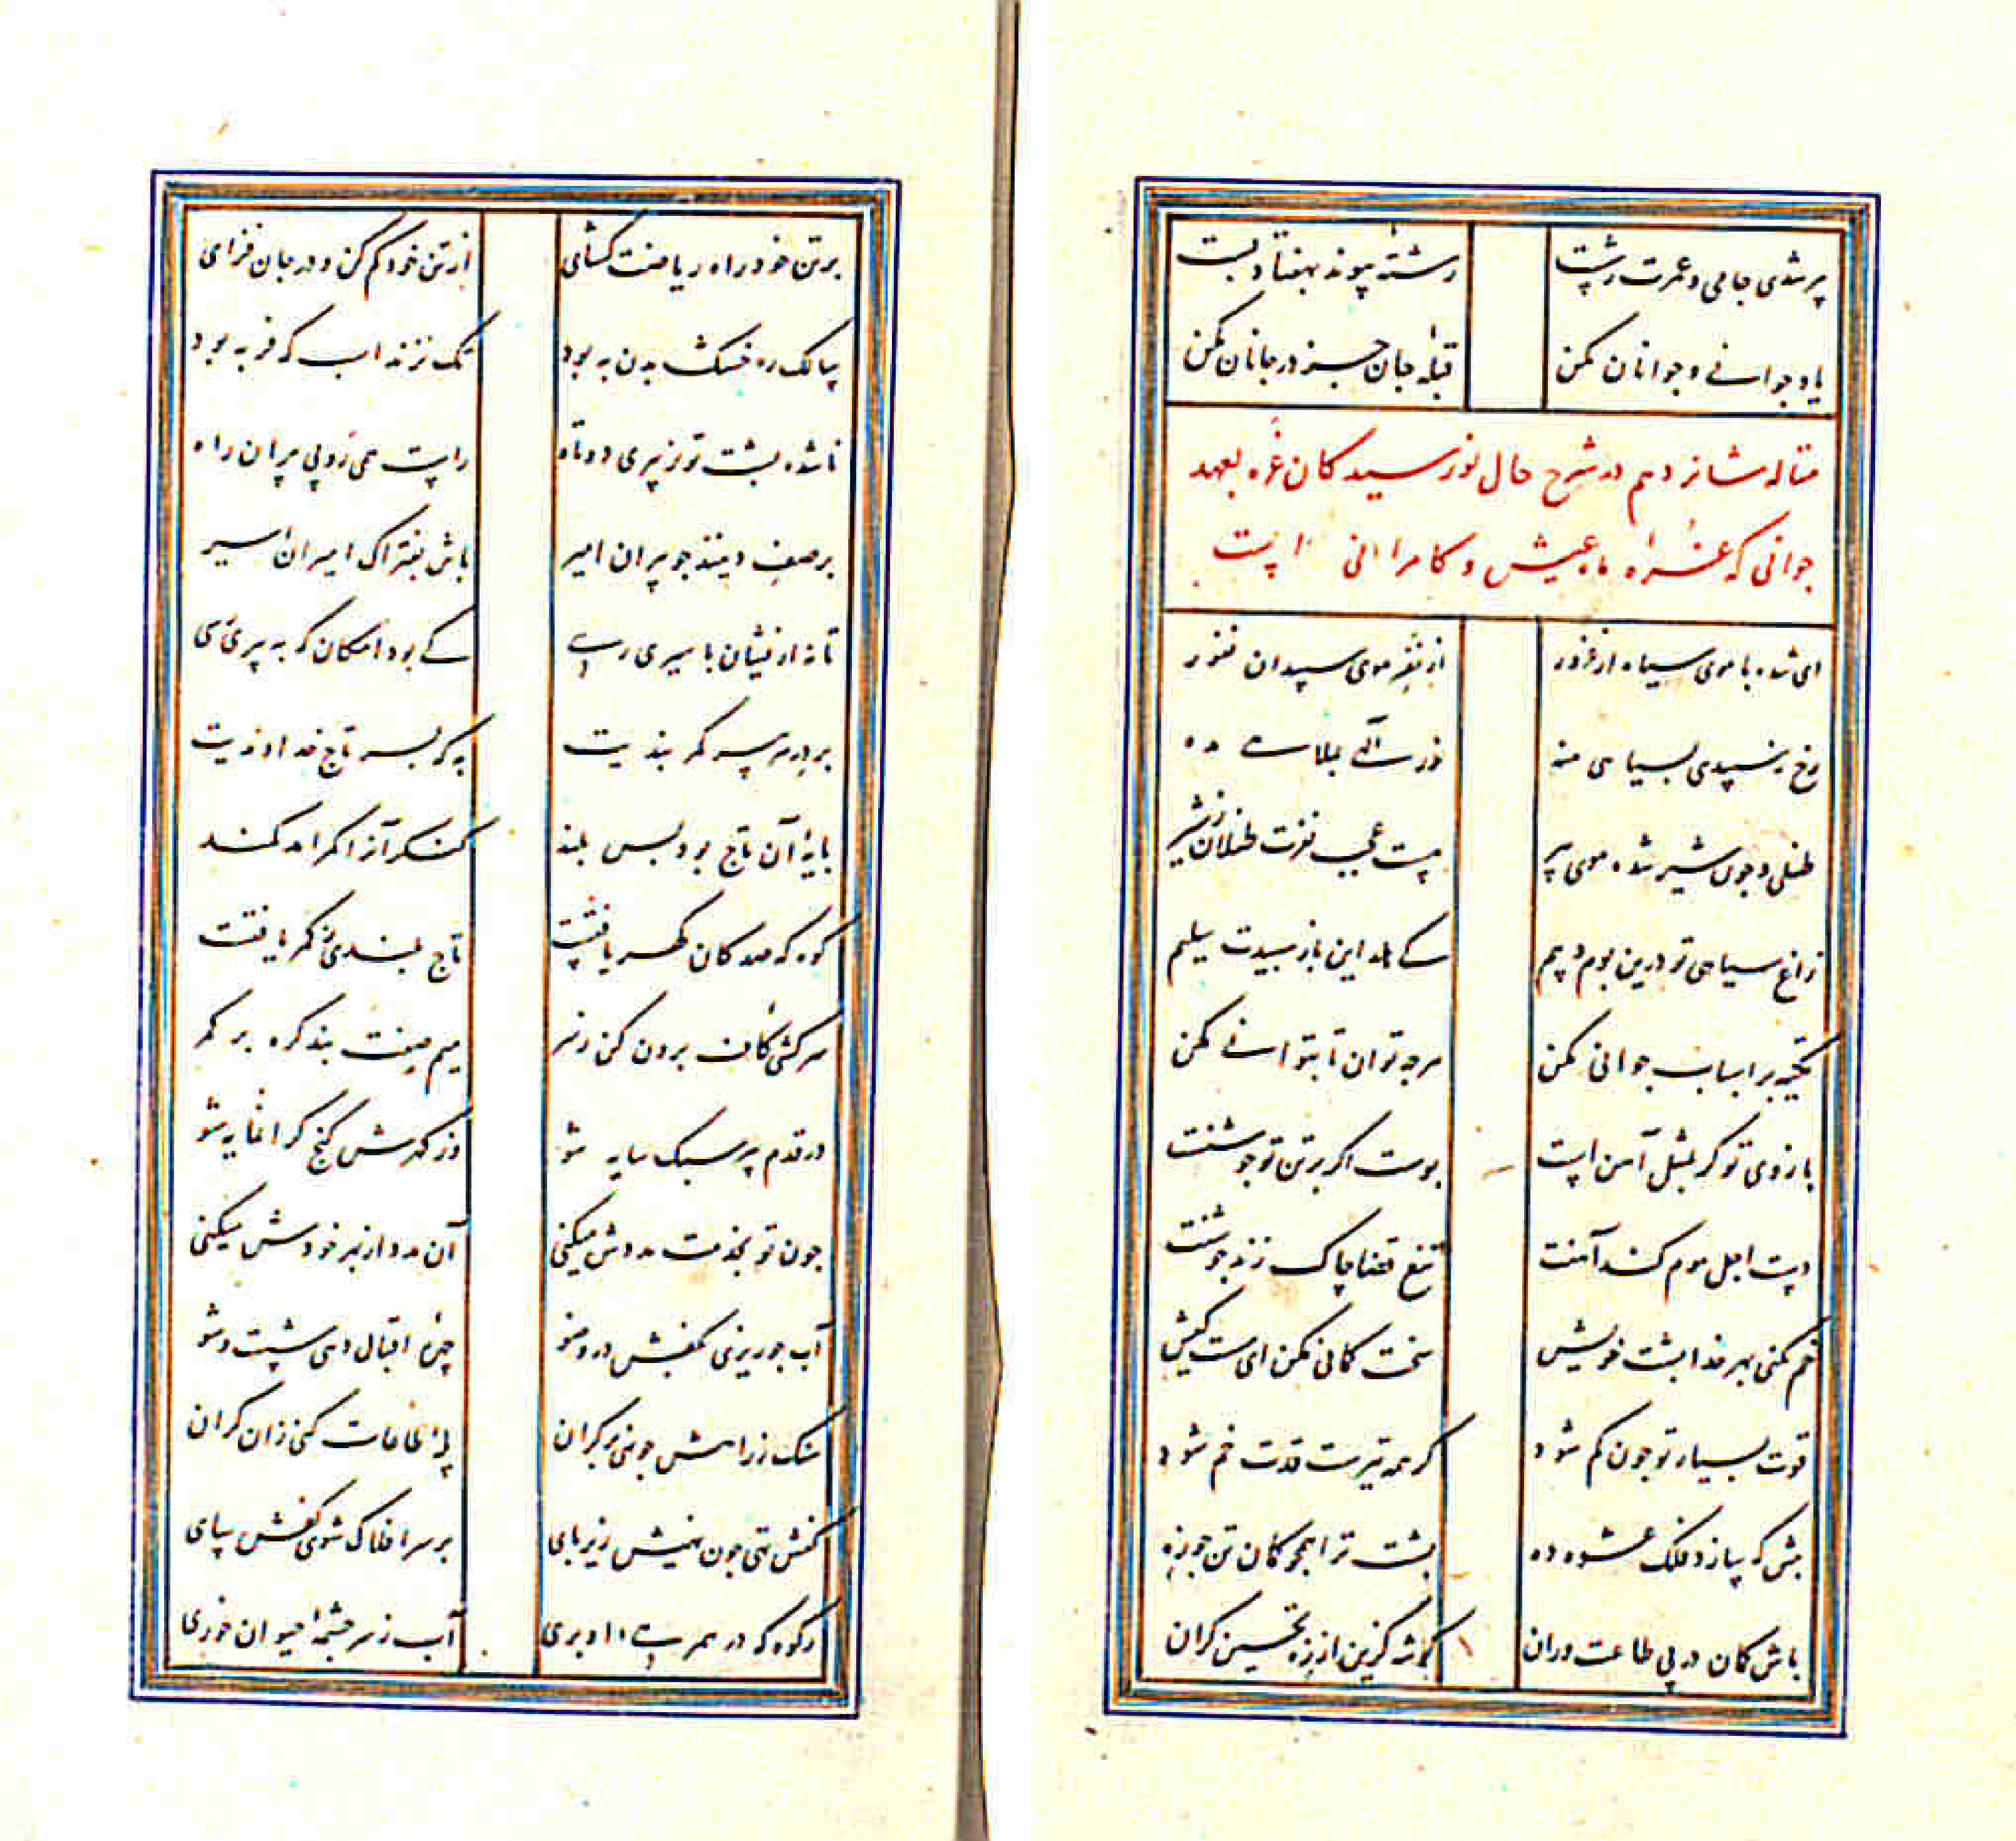 پیر شدی جامی و عمرت ز شست
رشتهٔ پیوند بهفتاد بست
یاد جوانی و جوانان مکن
قبلهٔ جان جز در جانان مکن
مقاله شانزدهم در شرح حال نورسیدکان غره بعهد
جوانی که غره ماه عیش و کامرانی است
ای شده با موی سیاه از غرور
از نفر موی سپیدان نفور
رخ ز سپیدی بسیاهی منه
طفلی و چون شیر شده موی پیر
هست عجب نفرت طفلان ز شیر
زاغ سیاهی تو درین بوم و بیم
کی هلد این باز سپیدت سلیم
تکیه بر اسباب جوانی مکن
هرچه توان تا بتوانی مکن
بازوی تو کر بمثل آهن است
پوست اکر بر تن تو جوشنست
دست اجل موم کند آهنت
تیغ قضا چاک زند جوشنت
خم نکنی بهر خدا پشت خویش
سخت کمانی مکن ای سست کیش
قوت بسیار تو چون کم شود
کر همه تیرست قدت خم شود
پیش که سازد فلک عشوه ده
پشت ترا همچو کمان تن چو زه
باش کمان در پی طاعت وران
کوشه کزین از زه تحسین کران
بر تن خود راه ریاضت کشای
از تن خود کم کن و در جان فزای
سالک ره خشک بدن به بود
تک نزند اسب که فربه بود
تا شده پشت تو ز پیری دوتاه
راست همی رو پی پیران راه
بر صف دینند چو پیران امیر
باش بفتراک امیران اسیر
تا نه ازیشان باسیری رسی
کی بود امکان که به پیری رسی
بر در هر پیر کمر بندیت
به که بسر تاج خداوندیت
پایهٔ آن تاج بود بس بلند
کنکر آنرا کمر آمد کمند
کوه که صد کان کهر یافتست
تاج بلندی ز کمر یافتست
سرکشی کاف برون کن ز سر
میم صفت بند کره بر کمر
در قدم پیر سبک سایه شو
وز کهرش کنج کرانمایه شو
چون تو بخدمت مددش میکنی
آن مدد از بهر خودش میکنی
آب چو ریزی بکفش در وضو
چرک اقبال دهی شست و شو
سنک ز راهش چو نهی بر کران
پلهٔ طاعات کنی زان کران
کفش تهی چون نهیش زیر پای
بر سر افلاک شوی کفش سای
رکوه که در همرهی او بری
آب ز سرچشمهٔ حیوان خوری